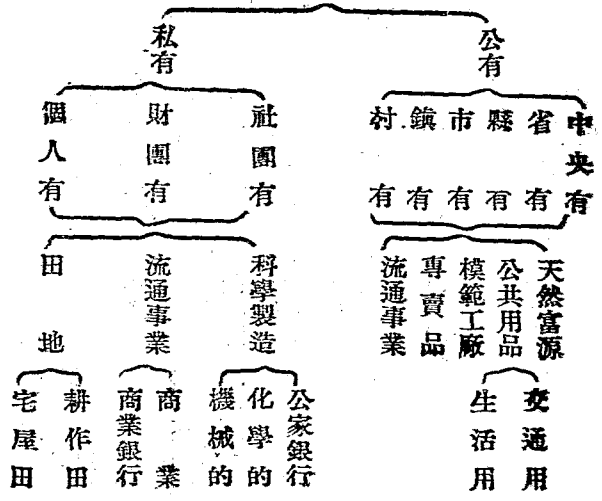 公有
私有
中央有
省有
縣有
市有
鎮有
村有
社團有
財團有
個人有
天然富源
公共用品
模範工廠
專賣品
流通事業
科學製造
流通事業
田地
交通用
生活用
公家銀行
化學的
機械的
商業
商業銀行
耕作田
宅屋田